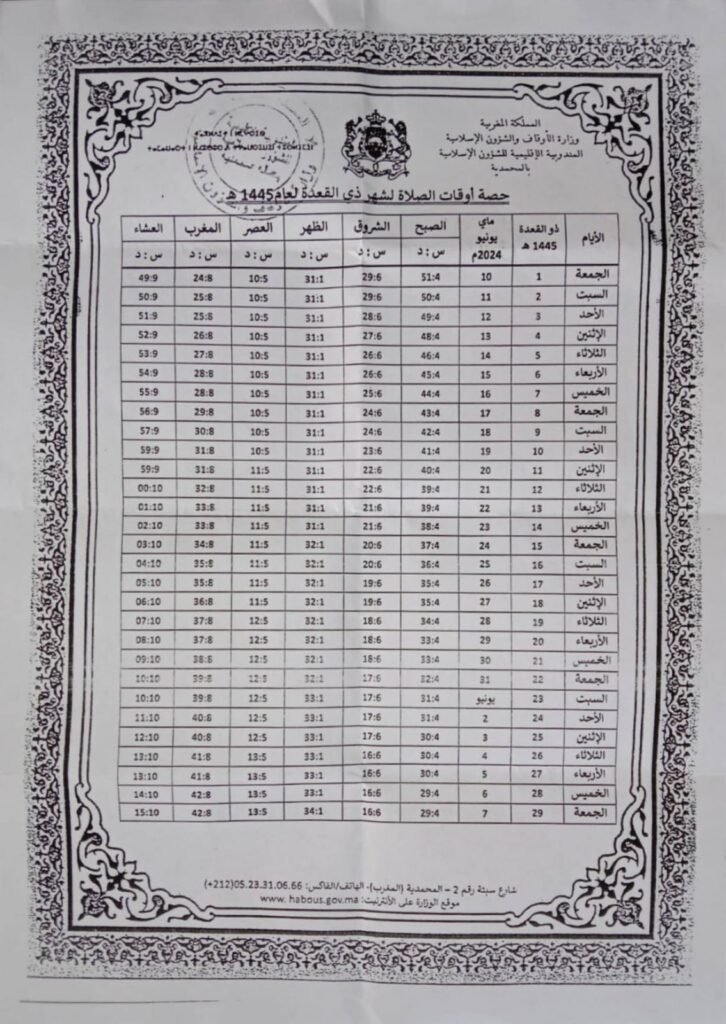 المملكة المغربية
وزارة الأوقاف والشؤون الإسلامية
المندوبية الإقليمية للشؤون الإسلامية
بالمحمدية
حصة أوقات الصلاة لشهر ذي القعدة لعام 1445 هـ
الأيام ذو القعدة 1445 هـ ماي يونيو 2024م الصبح الشروق الظهر العصر المغرب العشاء
س : د س : د س : د س : د س : د س : د
الجمعة 1 10 51:4 29:6 31:1 10:5 24:8 49:9
السبت 2 11 50:4 29:6 31:1 10:5 25:8 50:9
الأحد 3 12 49:4 28:6 31:1 10:5 25:8 51:9
الإثنين 4 13 48:4 27:6 31:1 10:5 26:8 52:9
الثلاثاء 5 14 46:4 26:6 31:1 10:5 27:8 53:9
الأربعاء 6 15 45:4 26:6 31:1 10:5 28:8 54:9
الخميس 7 16 44:4 25:6 31:1 10:5 28:8 55:9
الجمعة 8 17 43:4 24:6 31:1 10:5 29:8 56:9
السبت 9 18 42:4 24:6 31:1 10:5 30:8 57:9
الأحد 10 19 41:4 23:6 31:1 10:5 31:8 59:9
الإثنين 11 20 40:4 22:6 31:1 11:5 31:8 59:9
الثلاثاء 12 21 39:4 22:6 31:1 11:5 32:8 00:10
الأربعاء 13 22 39:4 21:6 31:1 11:5 33:8 01:10
الخميس 14 23 38:4 21:6 31:1 11:5 33:8 02:10
الجمعة 15 24 37:4 20:6 32:1 11:5 34:8 03:10
السبت 16 25 36:4 20:6 32:1 11:5 35:8 04:10
الأحد 17 26 35:4 19:6 32:1 11:5 35:8 05:10
الإثنين 18 27 35:4 19:6 32:1 11:5 36:8 06:10
الثلاثاء 19 28 34:4 18:6 32:1 12:5 37:8 07:10
الأربعاء 20 29 33:4 18:6 32:1 12:5 37:8 08:10
الخميس 21 30 33:4 18:6 32:1 12:5 38:8 09:10
الجمعة 22 31 32:4 17:6 32:1 12:5 39:8 10:10
السبت 23 يونيو 31:4 17:6 33:1 12:5 39:8 10:10
الأحد 24 2 31:4 17:6 33:1 12:5 40:8 11:10
الإثنين 25 3 30:4 17:6 33:1 12:5 40:8 12:10
الثلاثاء 26 4 30:4 16:6 33:1 13:5 41:8 13:10
الأربعاء 27 5 30:4 16:6 33:1 13:5 41:8 13:10
الخميس 28 6 29:4 16:6 33:1 13:5 42:8 14:10
الجمعة 29 7 29:4 16:6 34:1 13:5 42:8 15:10
شارع سبتة رقم 2 – المحمدية (المغرب)- الهاتف/الفاكس: 05.23.31.06.66(212+)
موقع الوزارة على الأنترنيت: www. habous.gov.ma